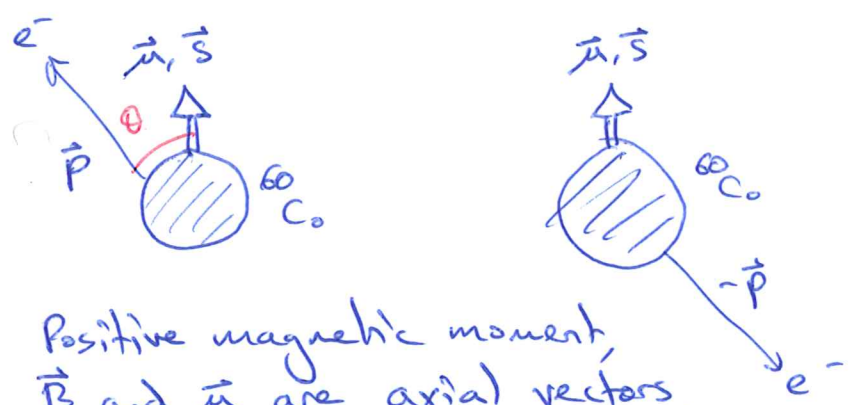 e⁻
μ⃗, s⃗
θ
p⃗
⁶⁰Co
μ⃗, s⃗
⁶⁰Co
-p⃗
e⁻
Positive magnetic moment,
B⃗ and μ⃗ are axial vectors